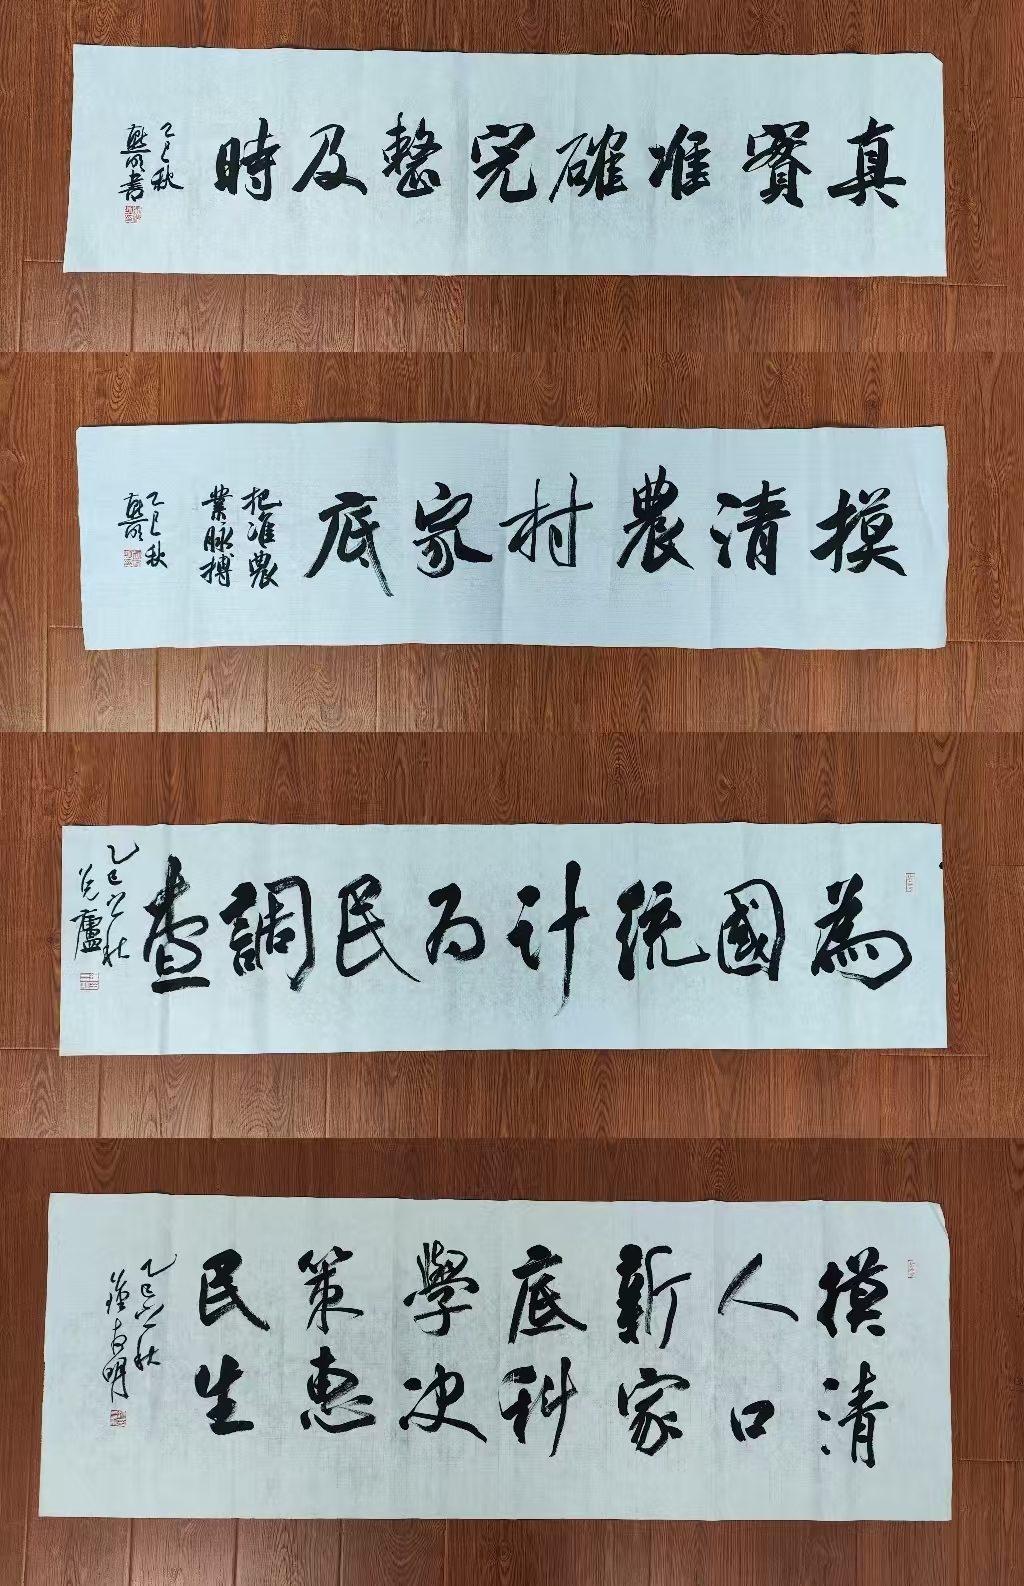 真實准確完整及時
乙巳秋
書
摸清農村家底
把准農
業脉搏
乙巳秋
為國統计为民調查
乙巳之秋
摸清
人口
新家
底科
學决
策惠
民生
乙巳之秋